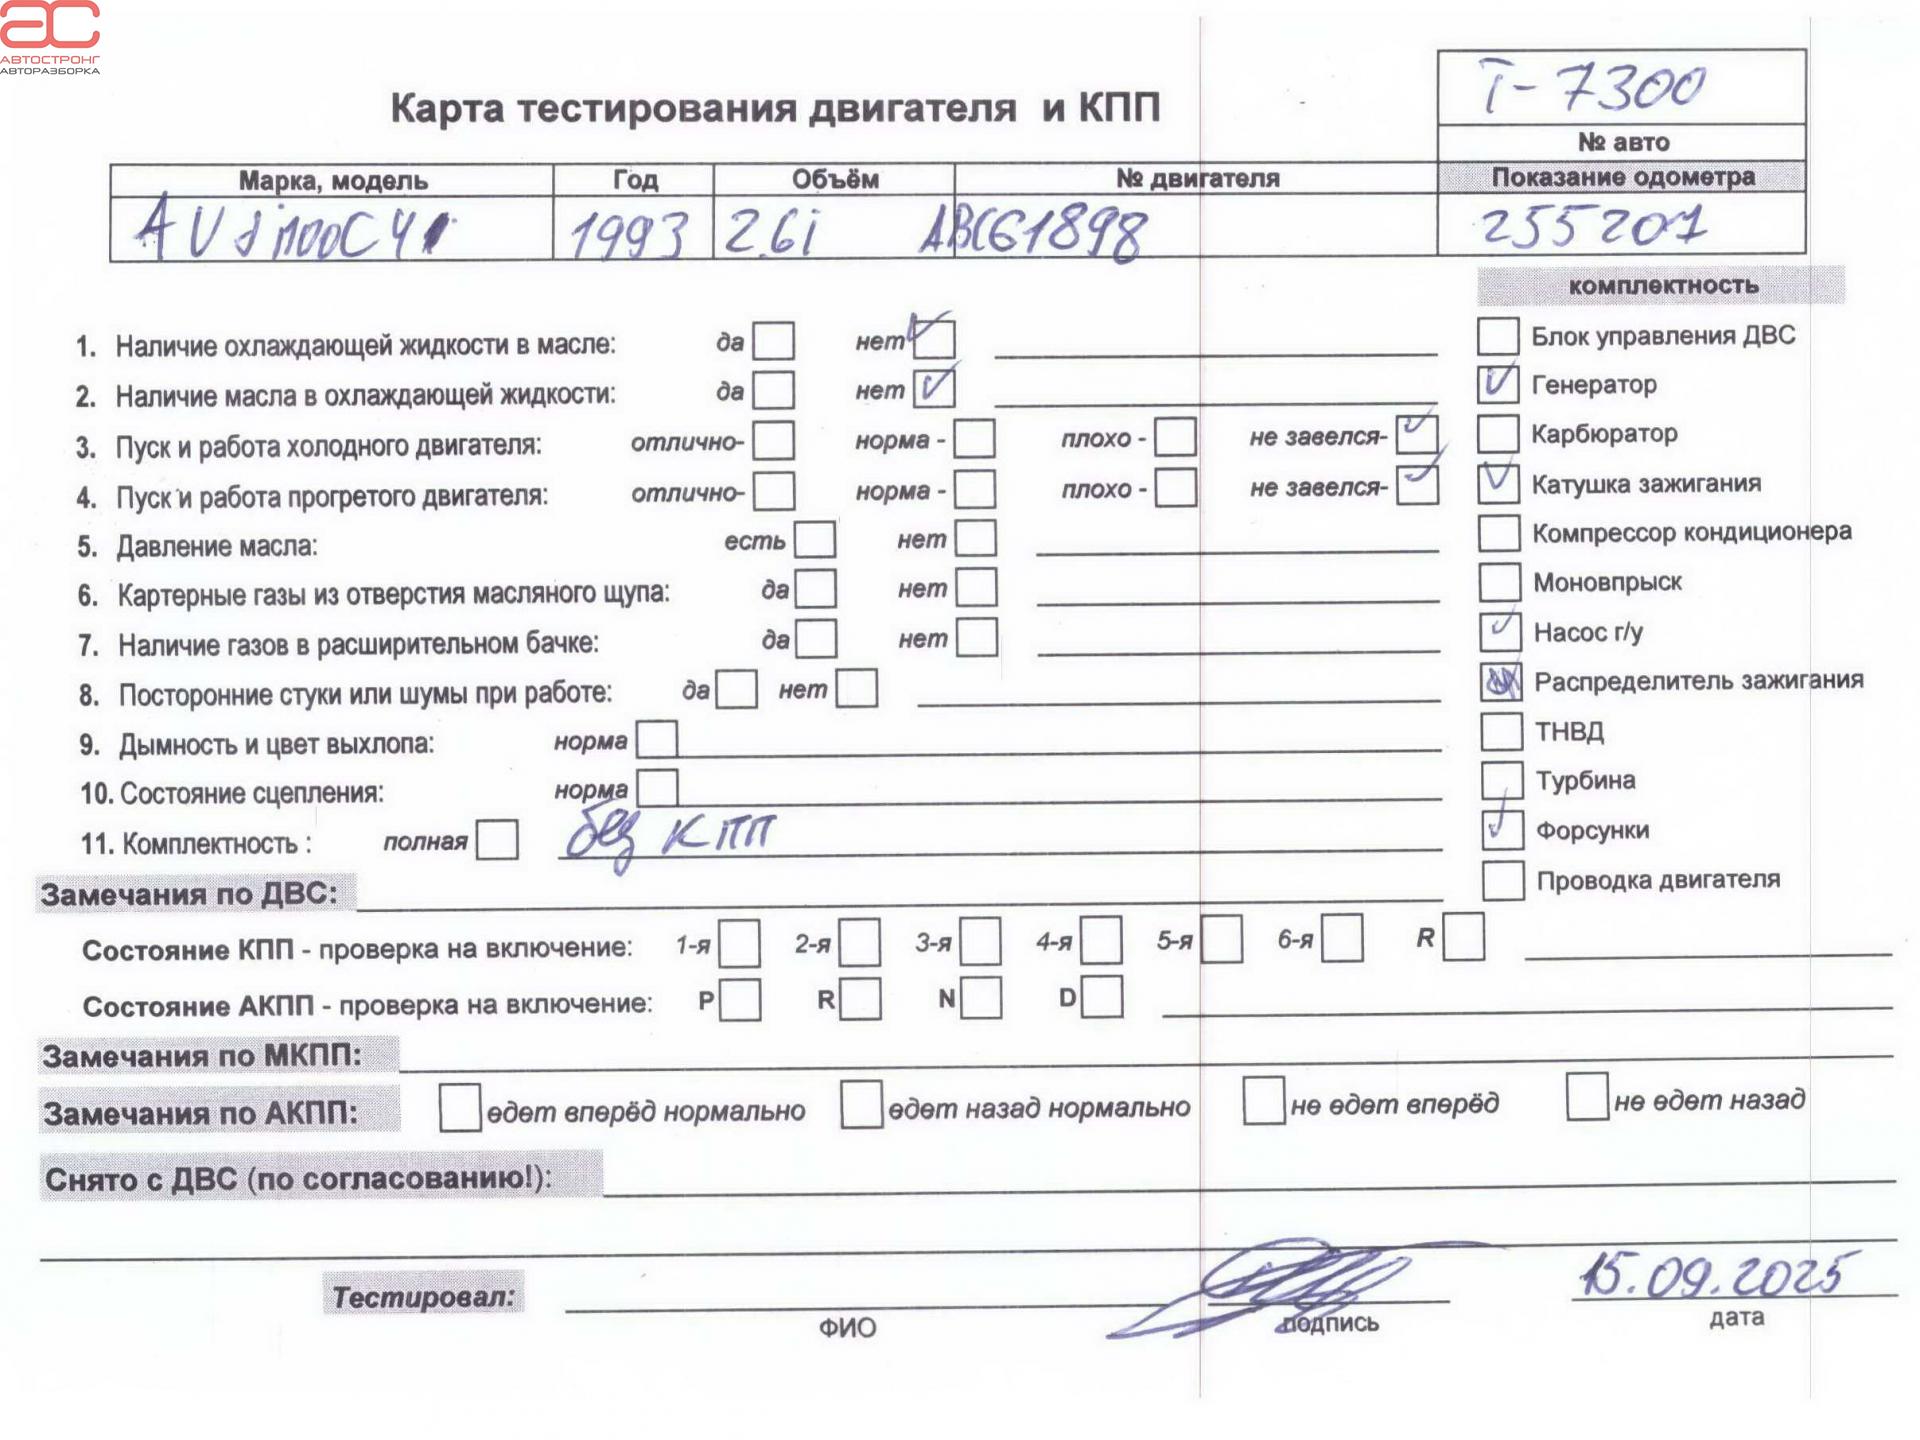 АС
АВТОСТРОНГ
АВТОРАЗБОРКА
Т-7300
Карта тестирования двигателя и КПП
№ авто
Марка, модель Год Объём № двигателя Показание одометра
AUdi100C4 1993 2.6i ABC61898 255207
комплектность
1. Наличие охлаждающей жидкости в масле: да нет Блок управления ДВС
2. Наличие масла в охлаждающей жидкости: да нет Генератор
3. Пуск и работа холодного двигателя: отлично- норма - плохо - не завелся- Карбюратор
4. Пуск и работа прогретого двигателя: отлично- норма - плохо - не завелся- Катушка зажигания
5. Давление масла: есть нет Компрессор кондиционера
6. Картерные газы из отверстия масляного щупа: да нет Моновпрыск
7. Наличие газов в расширительном бачке: да нет Насос г/у
8. Посторонние стуки или шумы при работе: да нет Распределитель зажигания
9. Дымность и цвет выхлопа: норма ТНВД
10. Состояние сцепления: норма Турбина
11. Комплектность : полная без КПП Форсунки
Замечания по ДВС: Проводка двигателя
Состояние КПП - проверка на включение: 1-я 2-я 3-я 4-я 5-я 6-я R
Состояние АКПП - проверка на включение: P R N D
Замечания по МКПП:
Замечания по АКПП: едет вперёд нормально едет назад нормально не едет вперёд не едет назад
Снято с ДВС (по согласованию!):
Тестировал: 15.09.2025
ФИО подпись дата